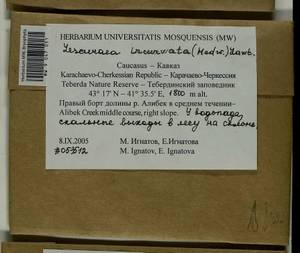 HERBARIUM UNIVERSITATIS MOSQUENSIS (MW)
Lescuraea incurvata (Hedw.) Lawt.
Caucasus – Кавказ
Karachaevo-Cherkessian Republic – Карачаево-Черкессия
Teberda Nature Reserve – Тебердинский заповедник
43° 17' N – 41° 35.5' E, 1800 m alt.
Правый борт долины р. Алибек в среднем течении–
Alibek Creek middle course, right slope. У водопада,
скальные выходы в лесу на склоне.
8.IX.2005 М. Игнатов, Е.Игнатова
#05-3512 M. Ignatov, E. Ignatova